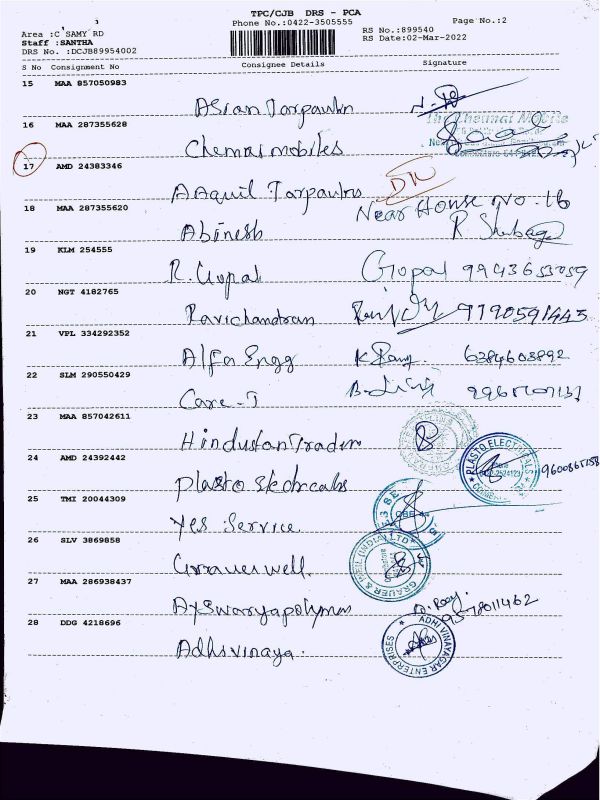 TPC/CJB DRS - PCA
Phone No.:0422-3505555
Page No.:2
Area :C SAMY RD
Staff :SANTHA
DRS No. :DCJB89954002
RS No.:899540
RS Date:02-Mar-2022
S No Consignment No Consignee Details Signature
15 MAA 857050983
Asian Tarpaulin
16 MAA 287355628
The Chennai Mobile
Chennai mobiles
17 AMD 24383346
AAquil Tarpaulins
Near House No. 16
18 MAA 287355620
Abinesh R
19 KLM 254555
R. Gopal Gopal 9943653059
20 NGT 4182765
Ravichandran 9790591443
21 VPL 334292352
Alfa Engg K 6384603892
22 SLM 290550429
Care-T
23 MAA 857042611
Hindustan Trader
24 AMD 24392442
PLASTO ELECTRICALS
Plasto
25 TMI 20044309
Yes Service
26 SLV 3869858
GRAUER & WEIL (INDIA) LTD
Grauer well.
27 MAA 286938437
Ayswaryapolymers 9578011462
28 DDG 4218696
ADHI VINAYAGAR ENTERPRISES
Adhivinaya.